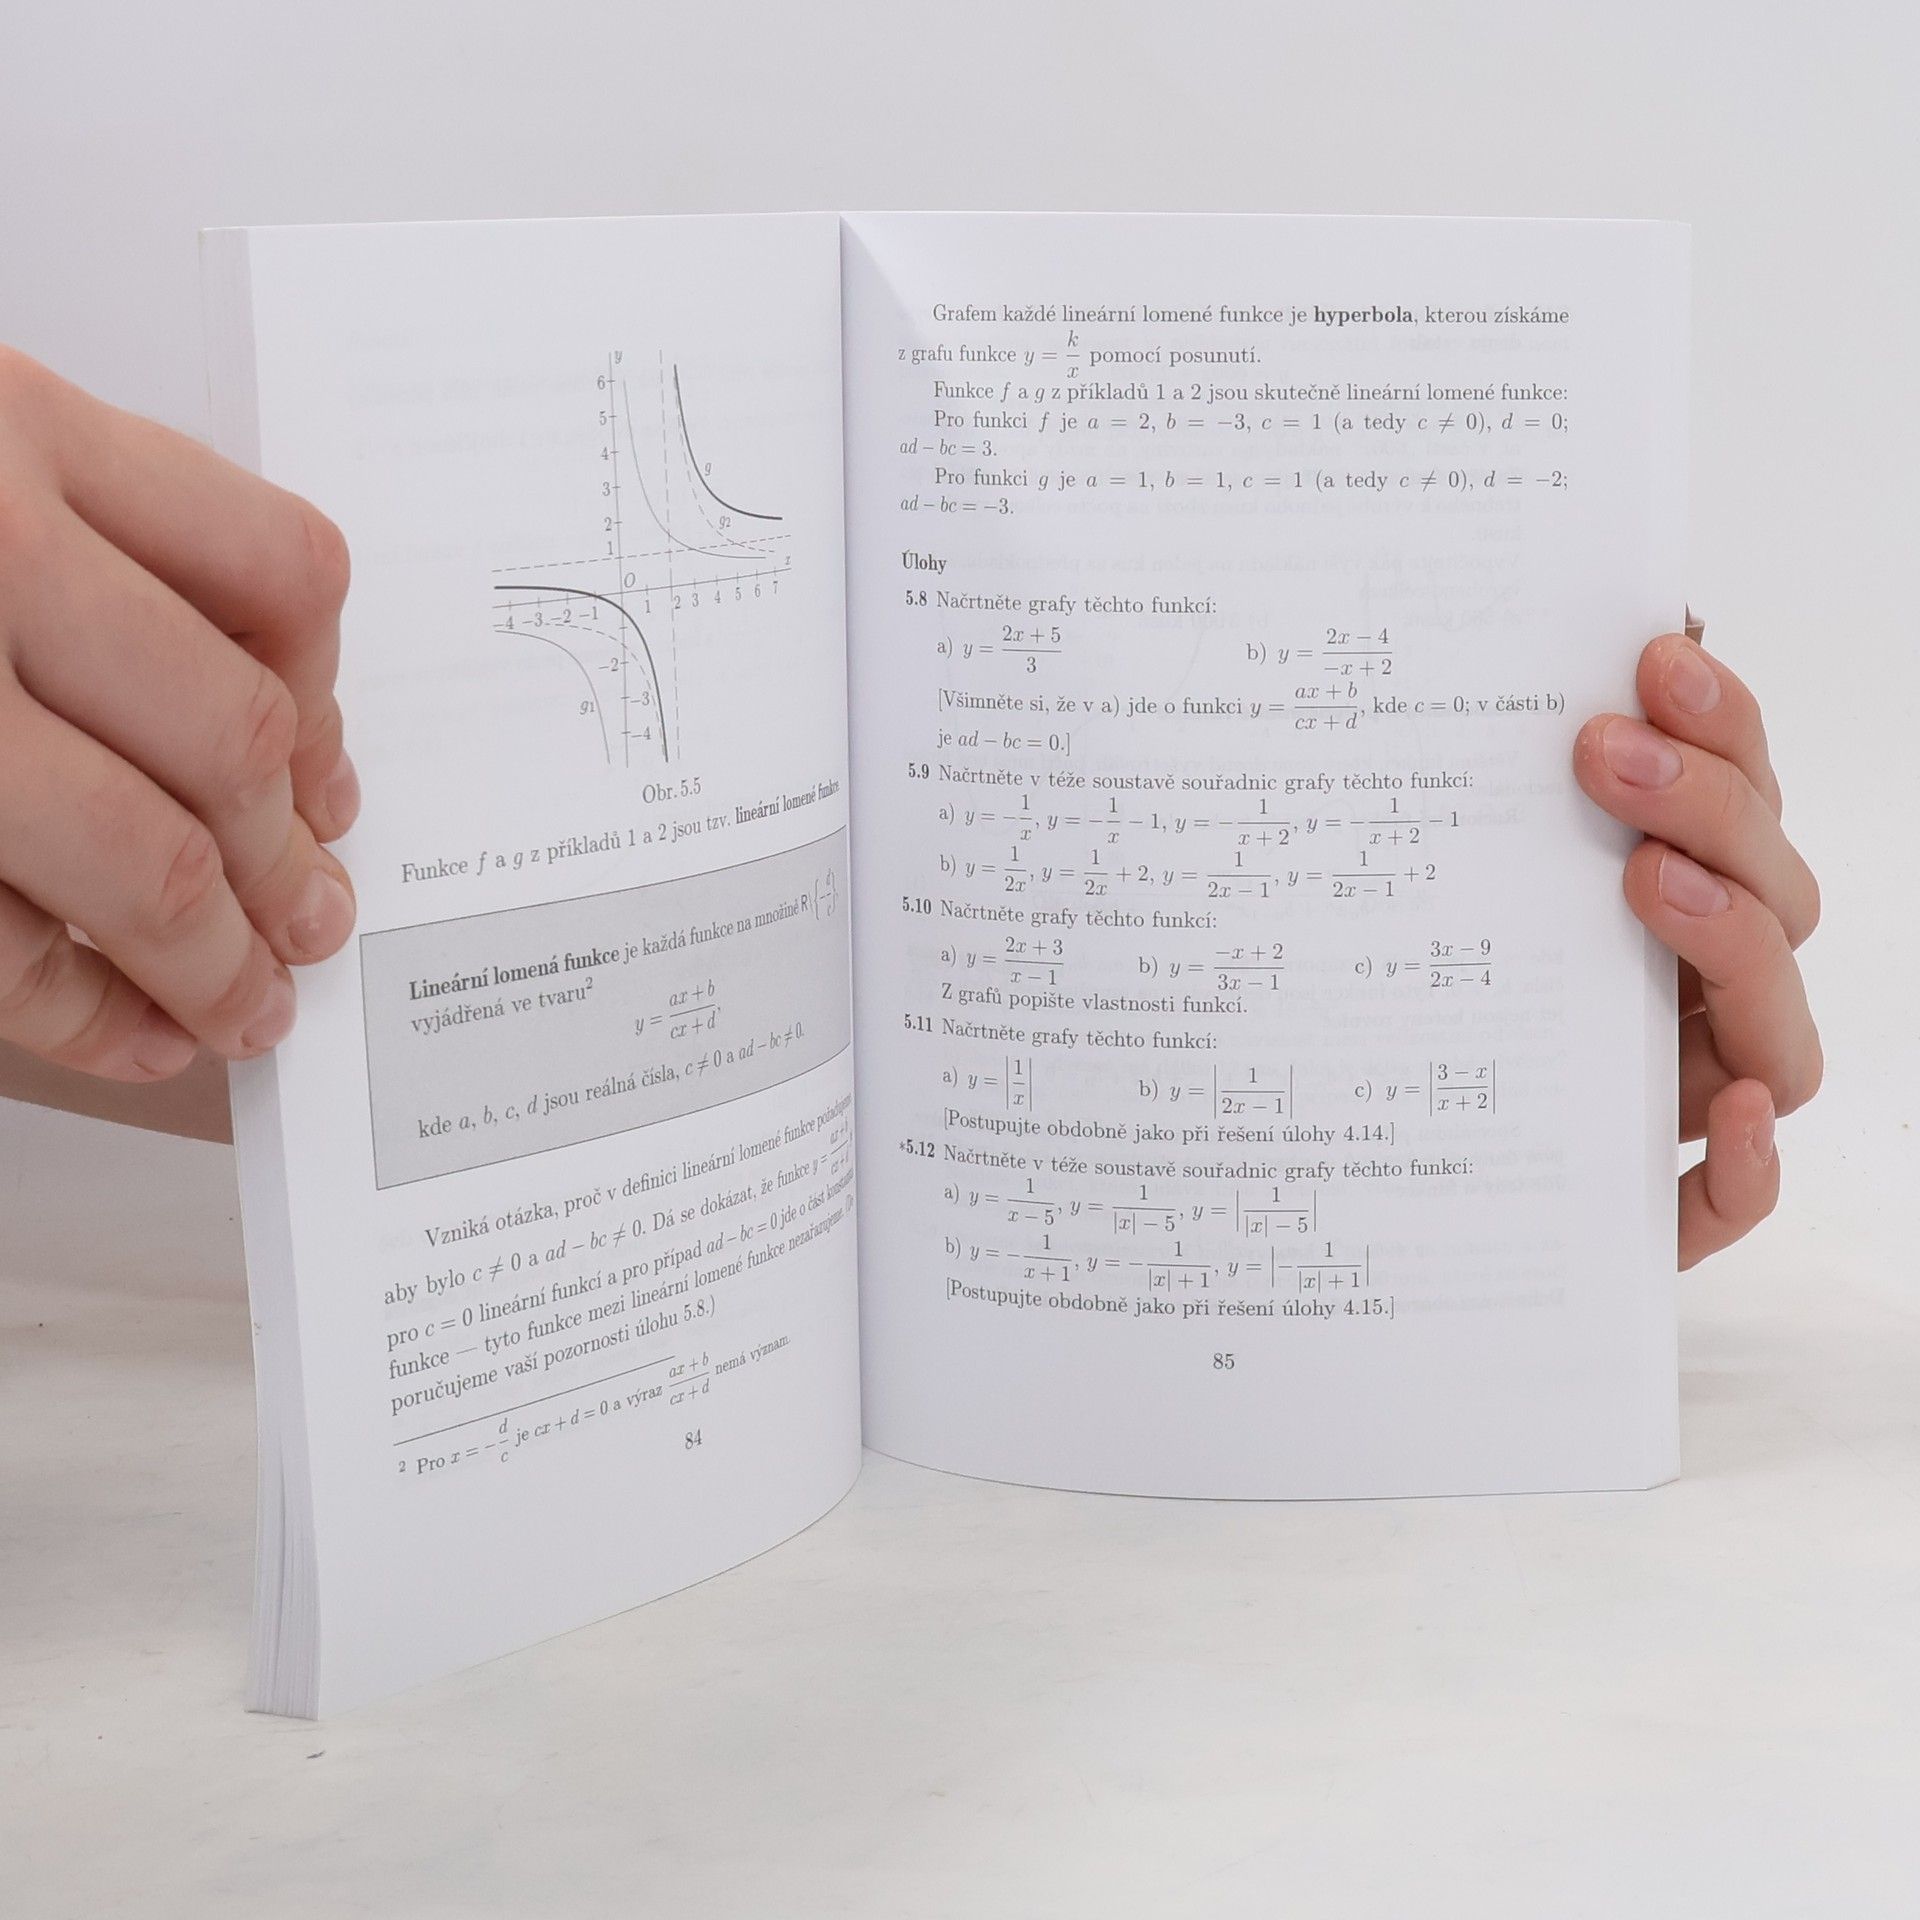 y
6
5
4
3
2
1
g
g₂
x
O
-4 -3 -2 -1 1 2 3 4 5 6 7
-2
-3
-4
g₁
Obr. 5.5
Funkce f a g z příkladů 1 a 2 jsou tzv. lineární lomené funkce
Lineární lomená funkce je každá funkce na množině R \ {-d/c},
vyjádřená ve tvaru²
y = (ax + b)/(cx + d),
kde a, b, c, d jsou reálná čísla, c ≠ 0 a ad − bc ≠ 0.
Vzniká otázka, proč v definici lineární lomené funkce požadujeme,
aby bylo c ≠ 0 a ad − bc ≠ 0. Dá se dokázat, že funkce y = (ax + b)/(cx + d) je
pro c = 0 lineární funkcí a pro případ ad − bc = 0 jde o část konstantní
funkce — tyto funkce mezi lineární lomené funkce nezařazujeme. (Do-
poručujeme vaší pozornosti úlohu 5.8.)
2 Pro x = −d/c je cx + d = 0 a výraz (ax + b)/(cx + d) nemá význam.
84
Grafem každé lineární lomené funkce je hyperbola, kterou získáme
z grafu funkce y = k/x pomocí posunutí.
Funkce f a g z příkladů 1 a 2 jsou skutečně lineární lomené funkce:
Pro funkci f je a = 2, b = −3, c = 1 (a tedy c ≠ 0), d = 0;
ad − bc = 3.
Pro funkci g je a = 1, b = 1, c = 1 (a tedy c ≠ 0), d = −2;
ad − bc = −3.
Úlohy
5.8 Načrtněte grafy těchto funkcí:
a) y = (2x + 5)/3 b) y = (2x − 4)/(−x + 2)
[Všimněte si, že v a) jde o funkci y = (ax + b)/(cx + d), kde c = 0; v části b)
je ad − bc = 0.]
5.9 Načrtněte v téže soustavě souřadnic grafy těchto funkcí:
a) y = −1/x, y = −1/x − 1, y = −1/(x + 2), y = −1/(x + 2) − 1
b) y = 1/(2x), y = 1/(2x) + 2, y = 1/(2x − 1), y = 1/(2x − 1) + 2
5.10 Načrtněte grafy těchto funkcí:
a) y = (2x + 3)/(x − 1) b) y = (−x + 2)/(3x − 1) c) y = (3x − 9)/(2x − 4)
Z grafů popište vlastnosti funkcí.
5.11 Načrtněte grafy těchto funkcí:
a) y = |1/x| b) y = |1/(2x − 1)| c) y = |(3 − x)/(x + 2)|
[Postupujte obdobně jako při řešení úlohy 4.14.]
*5.12 Načrtněte v téže soustavě souřadnic grafy těchto funkcí:
a) y = 1/(x − 5), y = 1/(|x| − 5), y = |1/(|x| − 5)|
b) y = −1/(x + 1), y = −1/(|x| + 1), y = |−1/(|x| + 1)|
[Postupujte obdobně jako při řešení úlohy 4.15.]
85